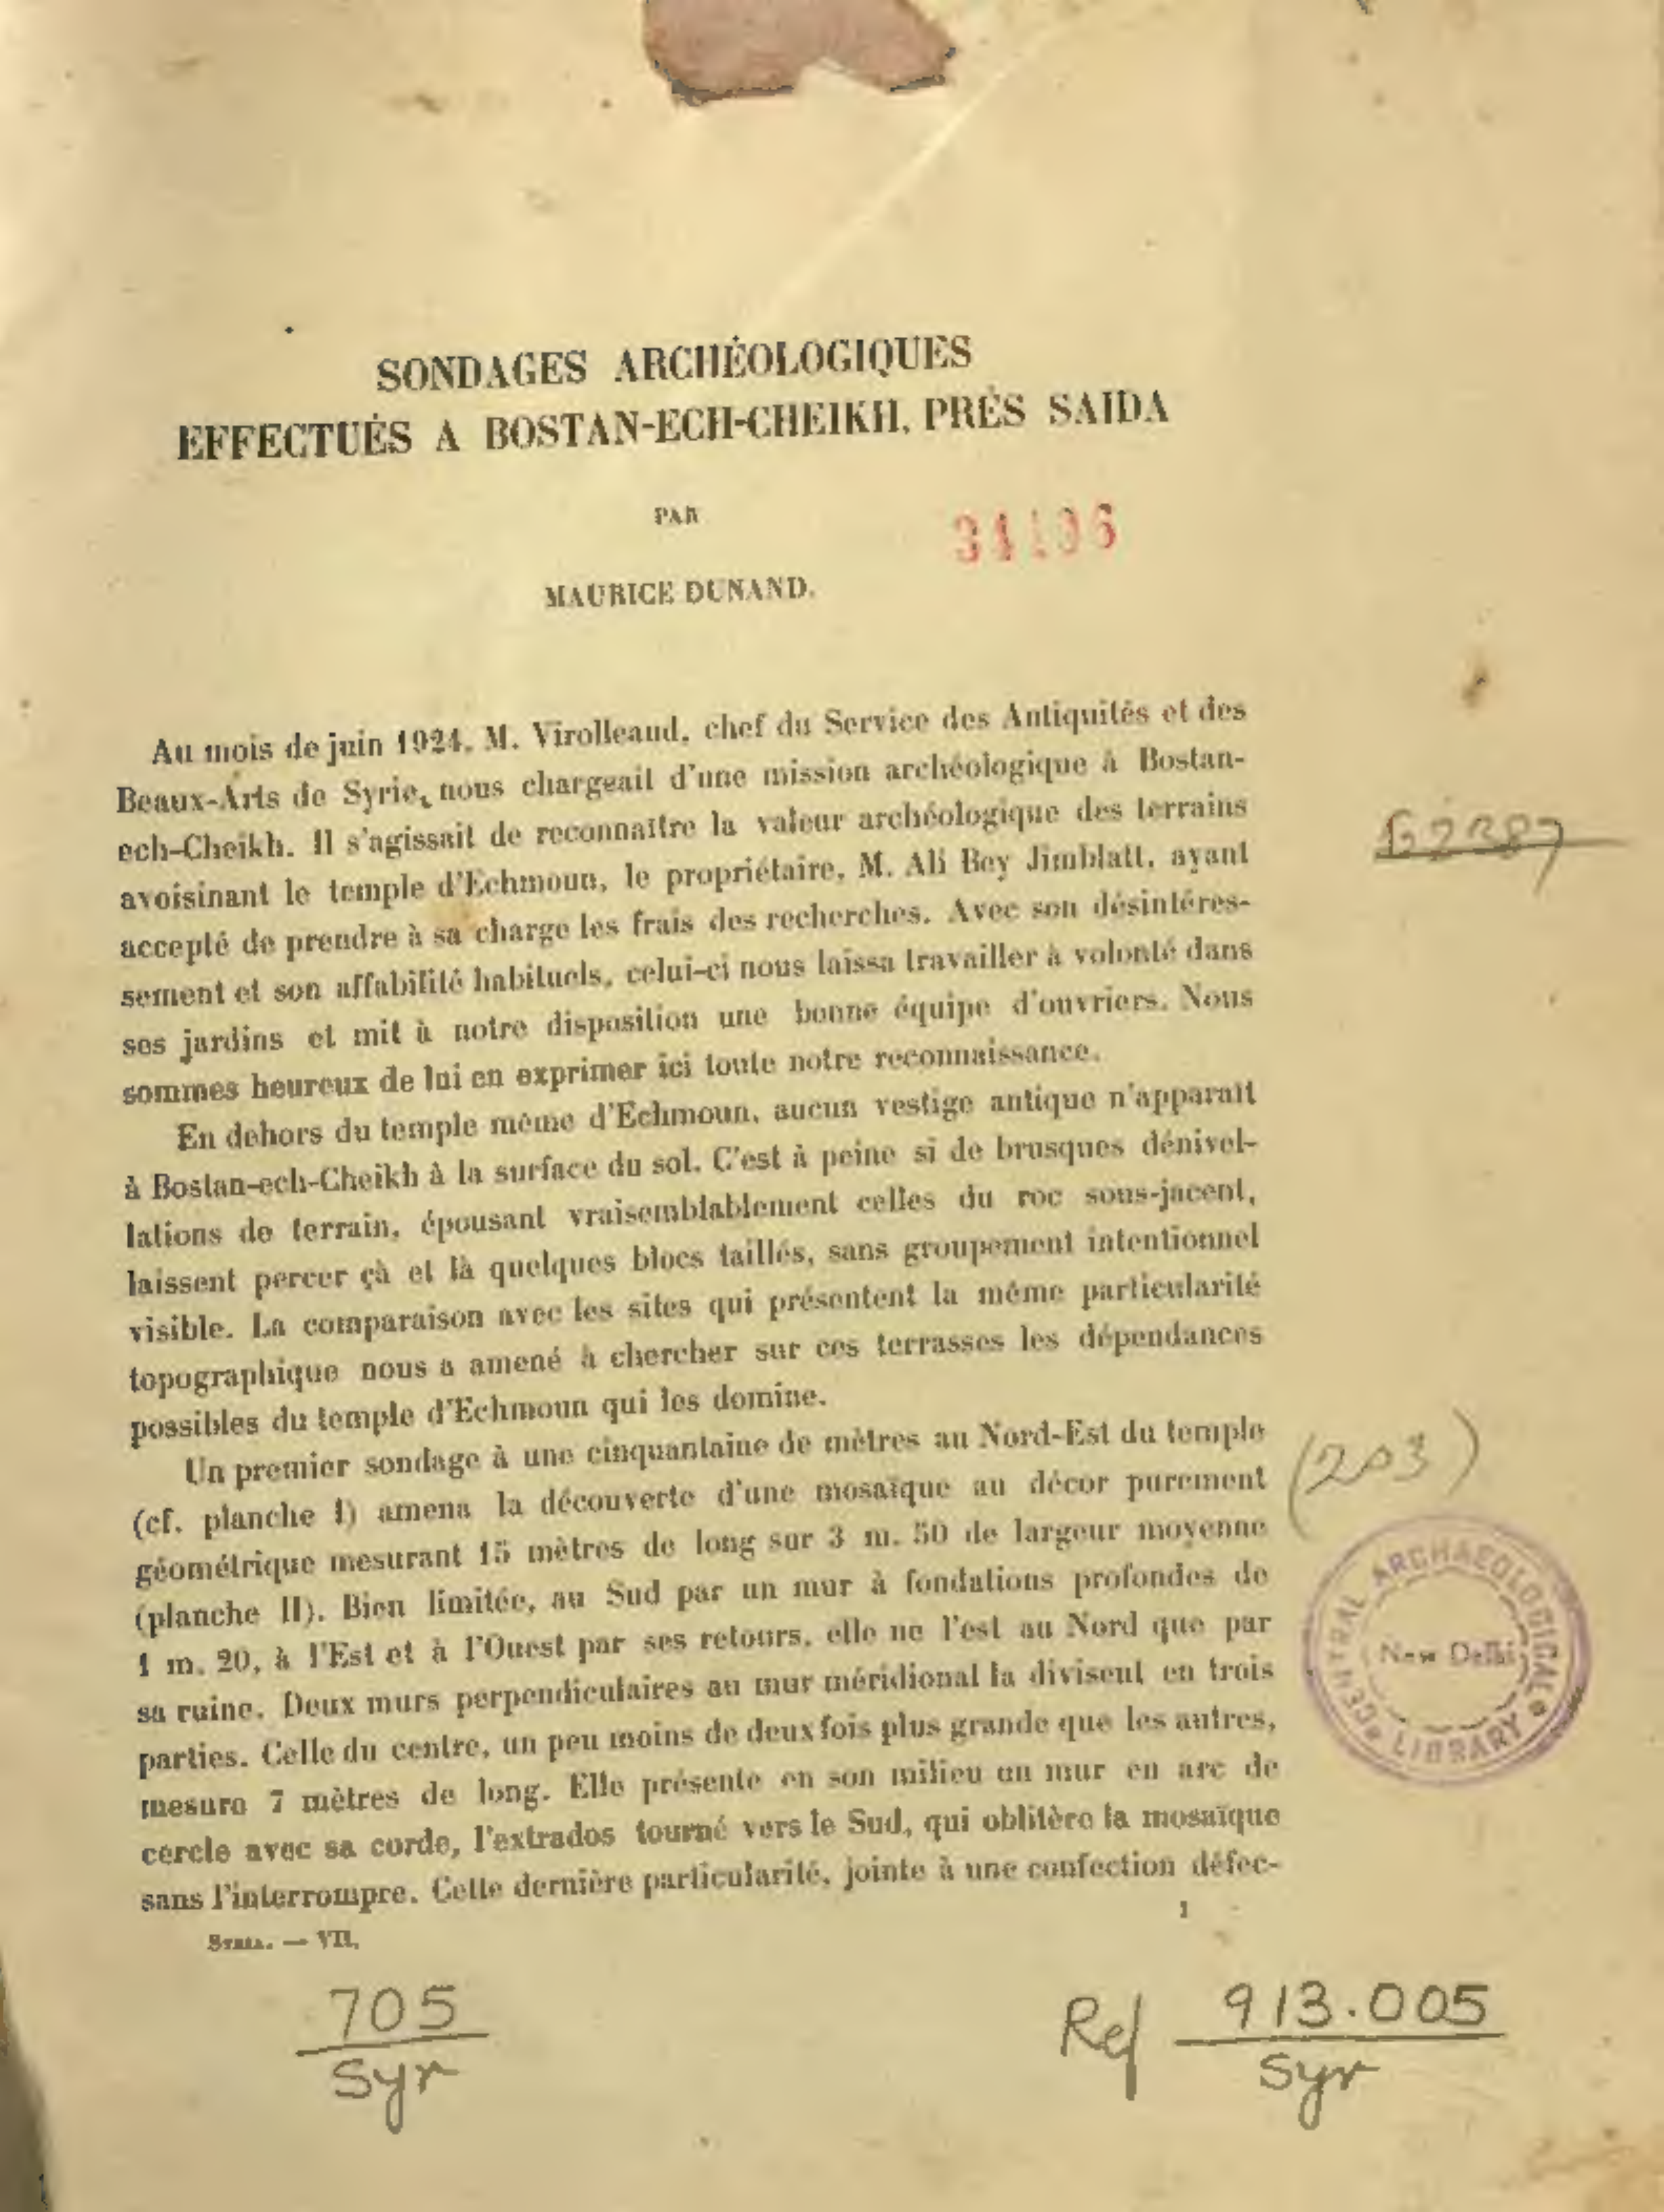 SONDAGES ARCHÉOLOGIQUES
EFFECTUÉS A BOSTAN-ECH-CHEIKH, PRÈS SAIDA
PAR
MAURICE DUNAND.
Au mois de juin 1924, M. Virolleaud, chef du Service des Antiquités et des
Beaux-Arts de Syrie, nous chargeait d'une mission archéologique à Bostan-
ech-Cheikh. Il s'agissait de reconnaître la valeur archéologique des terrains
avoisinant le temple d'Echmoun, le propriétaire, M. Ali Bey Jimblatt, ayant
accepté de prendre à sa charge les frais des recherches. Avec son désintéres-
sement et son affabilité habituels, celui-ci nous laissa travailler à volonté dans
ses jardins et mit à notre disposition une bonne équipe d'ouvriers. Nous
sommes heureux de lui en exprimer ici toute notre reconnaissance.
En dehors du temple même d'Echmoun, aucun vestige antique n'apparaît
à Bostan-ech-Cheikh à la surface du sol. C'est à peine si de brusques dénivel-
lations de terrain, épousant vraisemblablement celles du roc sous-jacent,
laissent percer çà et là quelques blocs taillés, sans groupement intentionnel
visible. La comparaison avec les sites qui présentent la même particularité
topographique nous a amené à chercher sur ces terrasses les dépendances
possibles du temple d'Echmoun qui les domine.
Un premier sondage à une cinquantaine de mètres au Nord-Est du temple
(cf. planche I) amena la découverte d'une mosaïque au décor purement
géométrique mesurant 15 mètres de long sur 3 m. 50 de largeur moyenne
(planche II). Bien limitée, au Sud par un mur à fondations profondes de
1 m. 20, à l'Est et à l'Ouest par ses retours, elle ne l'est au Nord que par
sa ruine. Deux murs perpendiculaires au mur méridional la divisent en trois
parties. Celle du centre, un peu moins de deux fois plus grande que les autres,
mesure 7 mètres de long. Elle présente en son milieu un mur en arc de
cercle avec sa corde, l'extrados tourné vers le Sud, qui oblitère la mosaïque
sans l'interrompre. Cette dernière particularité, jointe à une confection défec-
SYRIA. — VII. 1
(203)
CENTRAL ARCHAEOLOGICAL LIBRARY
New Delhi
705
Syr
Ref 913.005
Syr